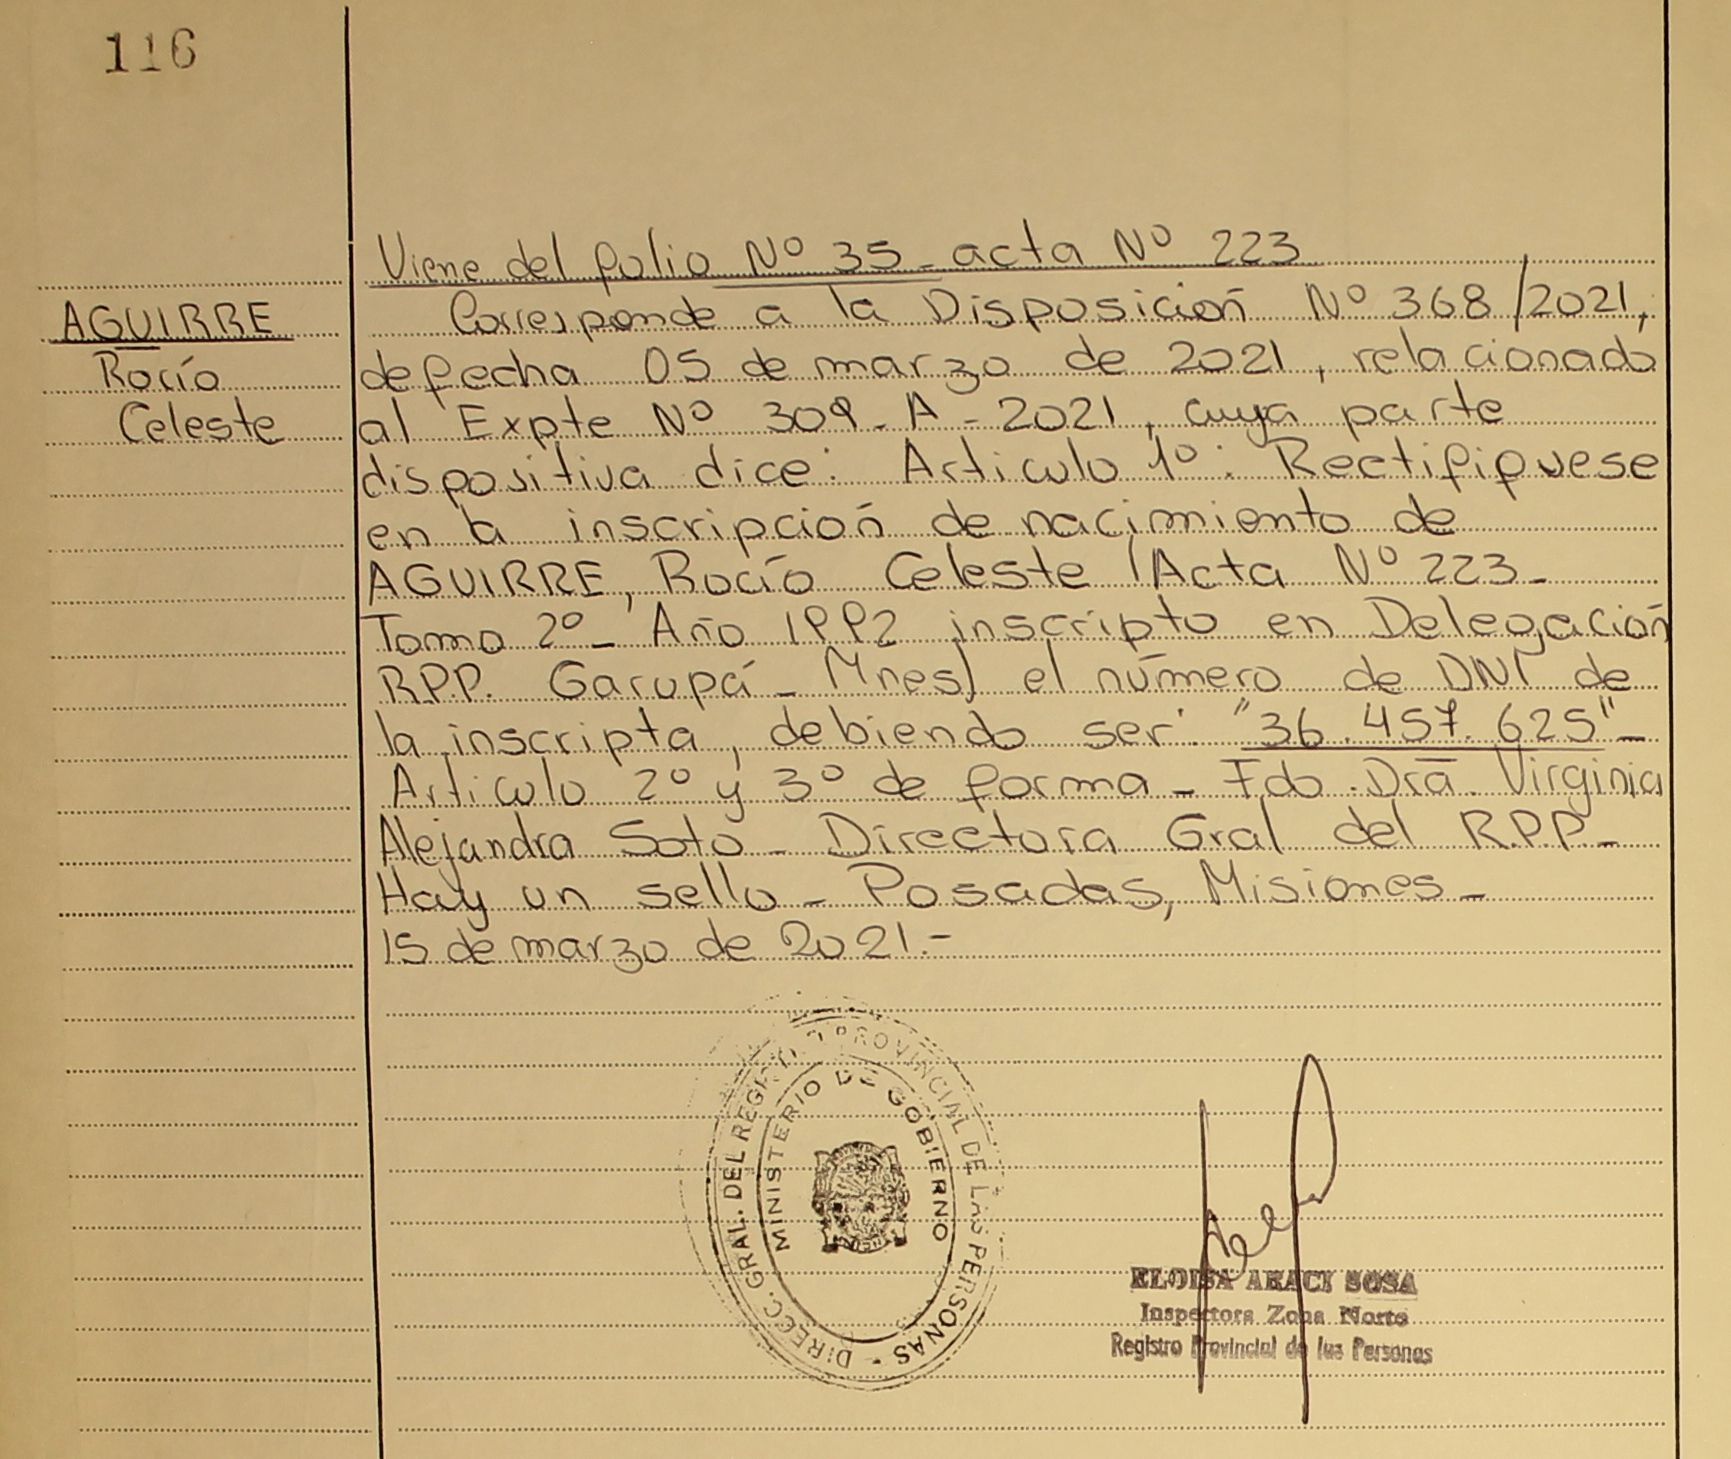 116
Viene del folio Nº 35 - acta Nº 223
AGUIRRE
Rocío
Celeste
Corresponde a la Disposición Nº 368/2021,
de fecha 05 de marzo de 2021, relacionado
al Expte Nº 309 - A - 2021, cuya parte
dispositiva dice: Articulo 1º: Rectifiquese
en la inscripción de nacimiento de
AGUIRRE, Rocío Celeste (Acta Nº 223 -
Tomo 2º - Año 1992 inscripto en Delegación
R.P.P. Garupá - Mnes) el número de DNI de
la inscripta, debiendo ser: "36.457.625" -
Articulo 2º y 3º de forma - Fdo. Dra. Virginia
Alejandra Soto - Directora Gral del R.P.P. -
Hay un sello - Posadas, Misiones -
15 de marzo de 2021.-
DIRECC. GRAL. DEL REGISTRO PROVINCIAL DE LAS PERSONAS
MINISTERIO DE GOBIERNO
ELOISA ARACI SOSA
Inspectora Zona Norte
Registro Provincial de las Personas